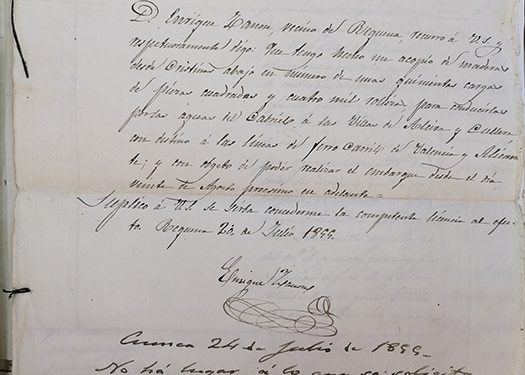 D. Enrique Zanon, vecino de Requena, recurro á V.S. y
respetuosamente digo: Que tengo hecho un acopio de maderas
desde Cristinas abajo en número de unas quinientas cargas
de piezas cuadradas y cuatro mil rollizos para conducirlas
por las aguas del Cabriel á las Villas de Alcira y Cullera
con destino á las lineas de ferro Carril de Valencia y Alican-
te; y con objeto de poder realizar el embarque desde el dia
veinte de Agosto procsimo en adelante.
Suplico á V.S. se sirva concederme la competente licencia al efec-
to. Requena 20 de Julio 1855.
Enrique Zanon
Cuenca 24 de Julio de 1855.
No há lugar á lo que se solicita